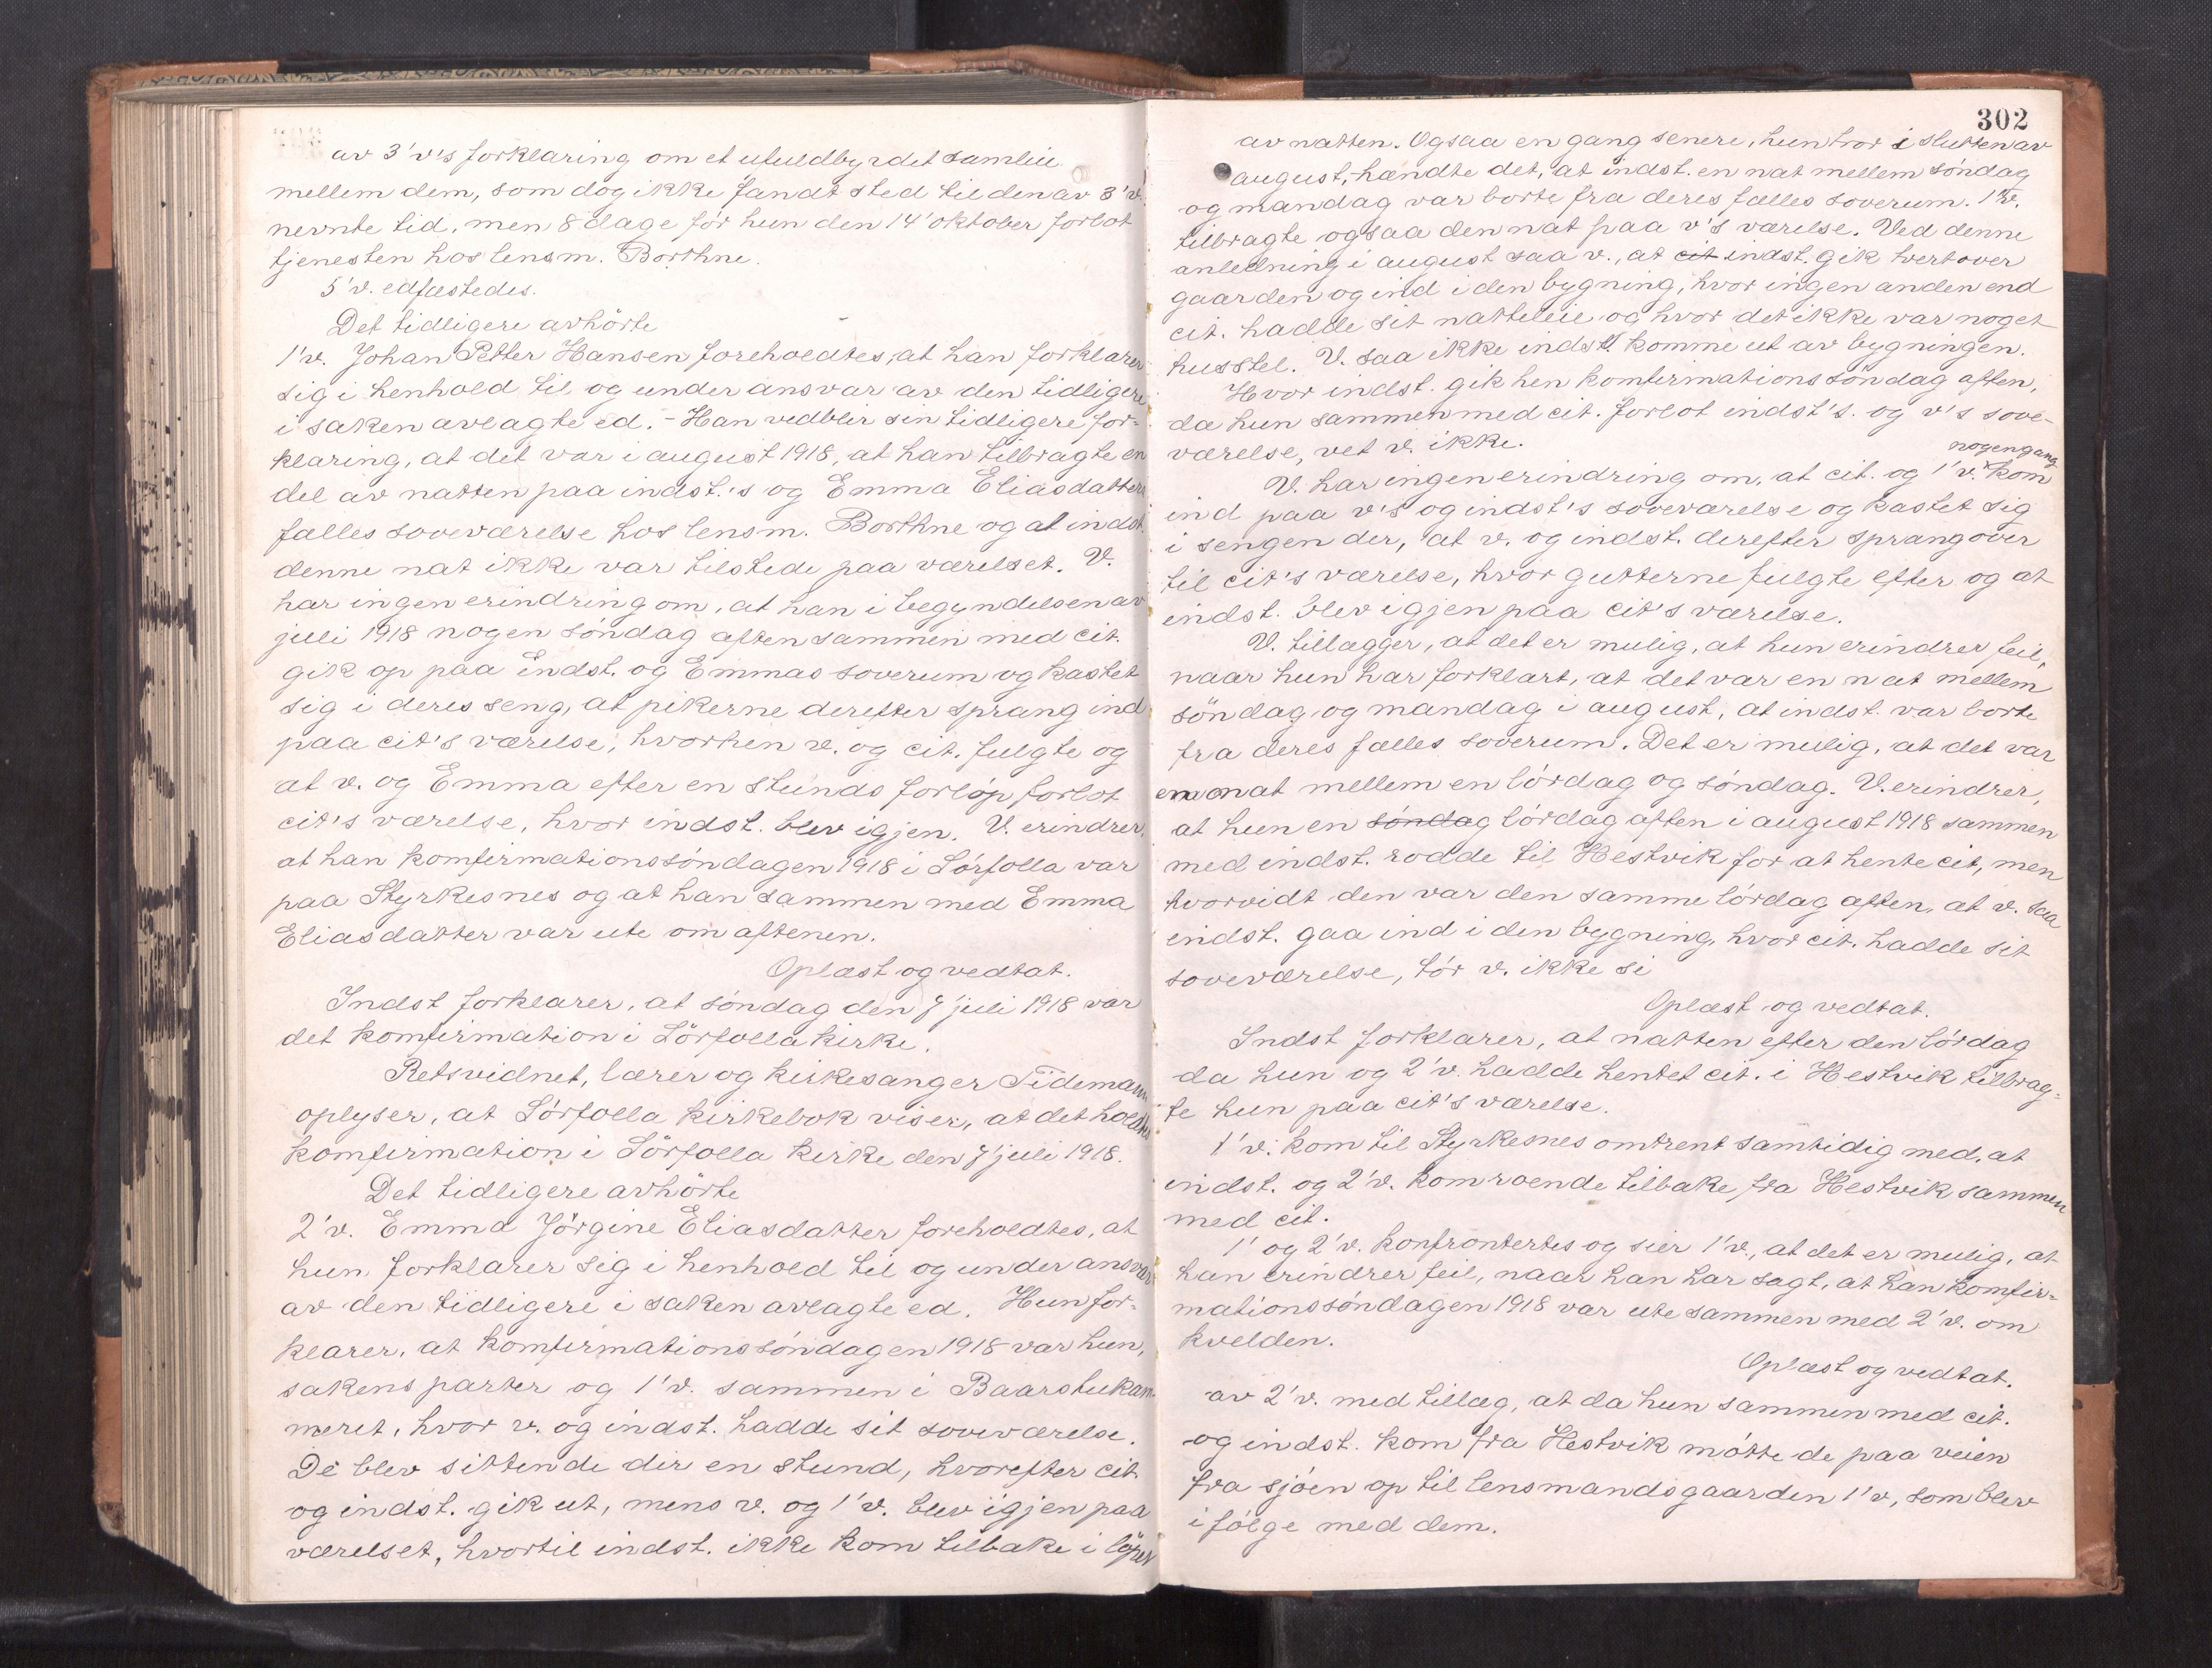 av 3'v's forklaring om et ufuldbyrdet samleie
mellem dem, som dog ikke fandt sted til den av 3'v.
nevnte tid, men 8 dage før hun den 14' oktober forlot
tjenesten hos lensm. Borthne.
5'v. edfæstedes.
Det tidligere avhørte
1'v. Johan Petter Hansen foreholdtes, at han forklarer
sig i henhold til og under ansvar av den tidligere
i saken avlagte ed. - Han vedblir sin tidligere for-
klaring, at det var i august 1918, at han tilbragte en
del av natten paa indst.'s og Emma Eliasdatters
fælles soveværelse hos lensm. Borthne og at indst.
denne nat ikke var tilstede paa værelset. V.
har ingen erindring om, at han i begyndelsen av
juli 1918 nogen søndag aften sammen med cit.
gik op paa indst. og Emmas soverum og kastet
sig i deres seng, at pikerne derefter sprang ind
paa cit's værelse, hvorhen v. og cit. fulgte og
at v. og Emma efter en stunds forløp forlot
cit's værelse, hvor indst. blev igjen. V. erindrer,
at han komfirmationssøndagen 1918 i Sørfolla var
paa Styrkesnes og at han sammen med Emma
Eliasdatter var ute om aftenen.
Oplæst og vedtat.
Indst forklarer, at søndag den 7' juli 1918 var
det komfirmation i Sørfolla kirke.
Retsvidnet, lærer og kirkesanger Tidemann
oplyser, at Sørfolla kirkebok viser, at det holdtes
komfirmation i Sørfolla kirke den 7' juli 1918.
Det tidligere avhørte
2'v. Emma Jørgine Eliasdatter foreholdtes, at
hun forklarer sig i henhold til og under ansvar
av den tidligere i saken avlagte ed. Hun for-
klarer, at komfirmationssøndagen 1918 var hun,
sakens parter og 1'v. sammen i Baarstukam-
meret, hvor v. og indst. hadde sit soveværelse.
De blev sittende der en stund, hvorefter cit.
og indst. gik ut, mens v. og 1'v. blev igjen paa
værelset, hvortil indst. ikke kom tilbake i løpet
302
av natten. Ogsaa en gang senere, hun tror i slutten av
august, hændte det, at indst. en nat mellem søndag
og mandag var borte fra deres fælles soverum. 1'v.
tilbragte ogsaa den nat paa v's værelse. Ved denne
anledning i august saa v., at cit indst. gik tvert over
gaarden og ind i den bygning, hvor ingen anden end
cit. hadde sit natteleie og hvor det ikke var noget
husstel. V. saa ikke indst. komme ut av bygningen.
Hvor indst. gik hen komfirmationssøndag aften,
da hun sammen med cit. forlot indst's. og v's sove-
værelse, vet v. ikke.
nogengang
V. har ingen erindring om, at cit. og 1'v. kom
ind paa v's og indst's soveværelse og kastet sig
i sengen der, at v. og indst. derefter sprang over
til cit's værelse, hvor gutterne fulgte efter og at
indst. blev igjen paa cit's værelse.
V. tillægger, at det er mulig, at hun erindrer feil,
naar hun har forklart, at det var en nat mellem
søndag og mandag i august, at indst. var borte
fra deres fælles soverum. Det er mulig, at det var
en nat mellem en lørdag og søndag. V. erindrer,
at hun en søndag lørdag aften i august 1918 sammen
med indst. rodde til Hestvik for at hente cit, men
hvorvidt den var den samme lørdag aften, at v. saa
indst. gaa ind i den bygning, hvor cit. hadde sit
soveværelse, tør v. ikke si
Oplæst og vedtat.
Indst forklarer, at natten efter den lørdag
da hun og 2'v. hadde hentet cit. i Hestvik tilbrag-
te hun paa cit's værelse.
1'v. kom til Styrkesnes omtrent samtidig med, at
indst. og 2'v. kom roende tilbake fra Hestvik sammen
med cit.
1' og 2'v. konfrontertes og sier 1'v., at det er mulig, at
han erindrer feil, naar han har sagt, at han komfir-
mationssøndagen 1918 var ute sammen med 2'v. om
kvelden.
Oplæst og vedtat.
av 2'v. med tillæg, at da hun sammen med cit.
og indst. kom fra Hestvik møtte de paa veien
fra sjøen op til lensmandsgaarden 1'v, som blev
i følge med dem.